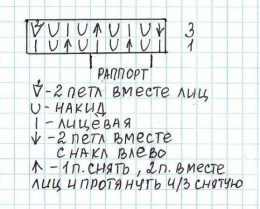 3
1
РАППОРТ
2
-2 ПЕТЛ ВМЕСТЕ ЛИЦ
U-НАКИД
I-ЛИЦЕВАЯ
↓-2 ПЕТЛ ВМЕСТЕ
С НАКЛ ВЛЕВО
↑-1 П. СНЯТЬ, 2 П. ВМЕСТЕ
ЛИЦ И ПРОТЯНУТЬ Ч/З СНЯТУЮ